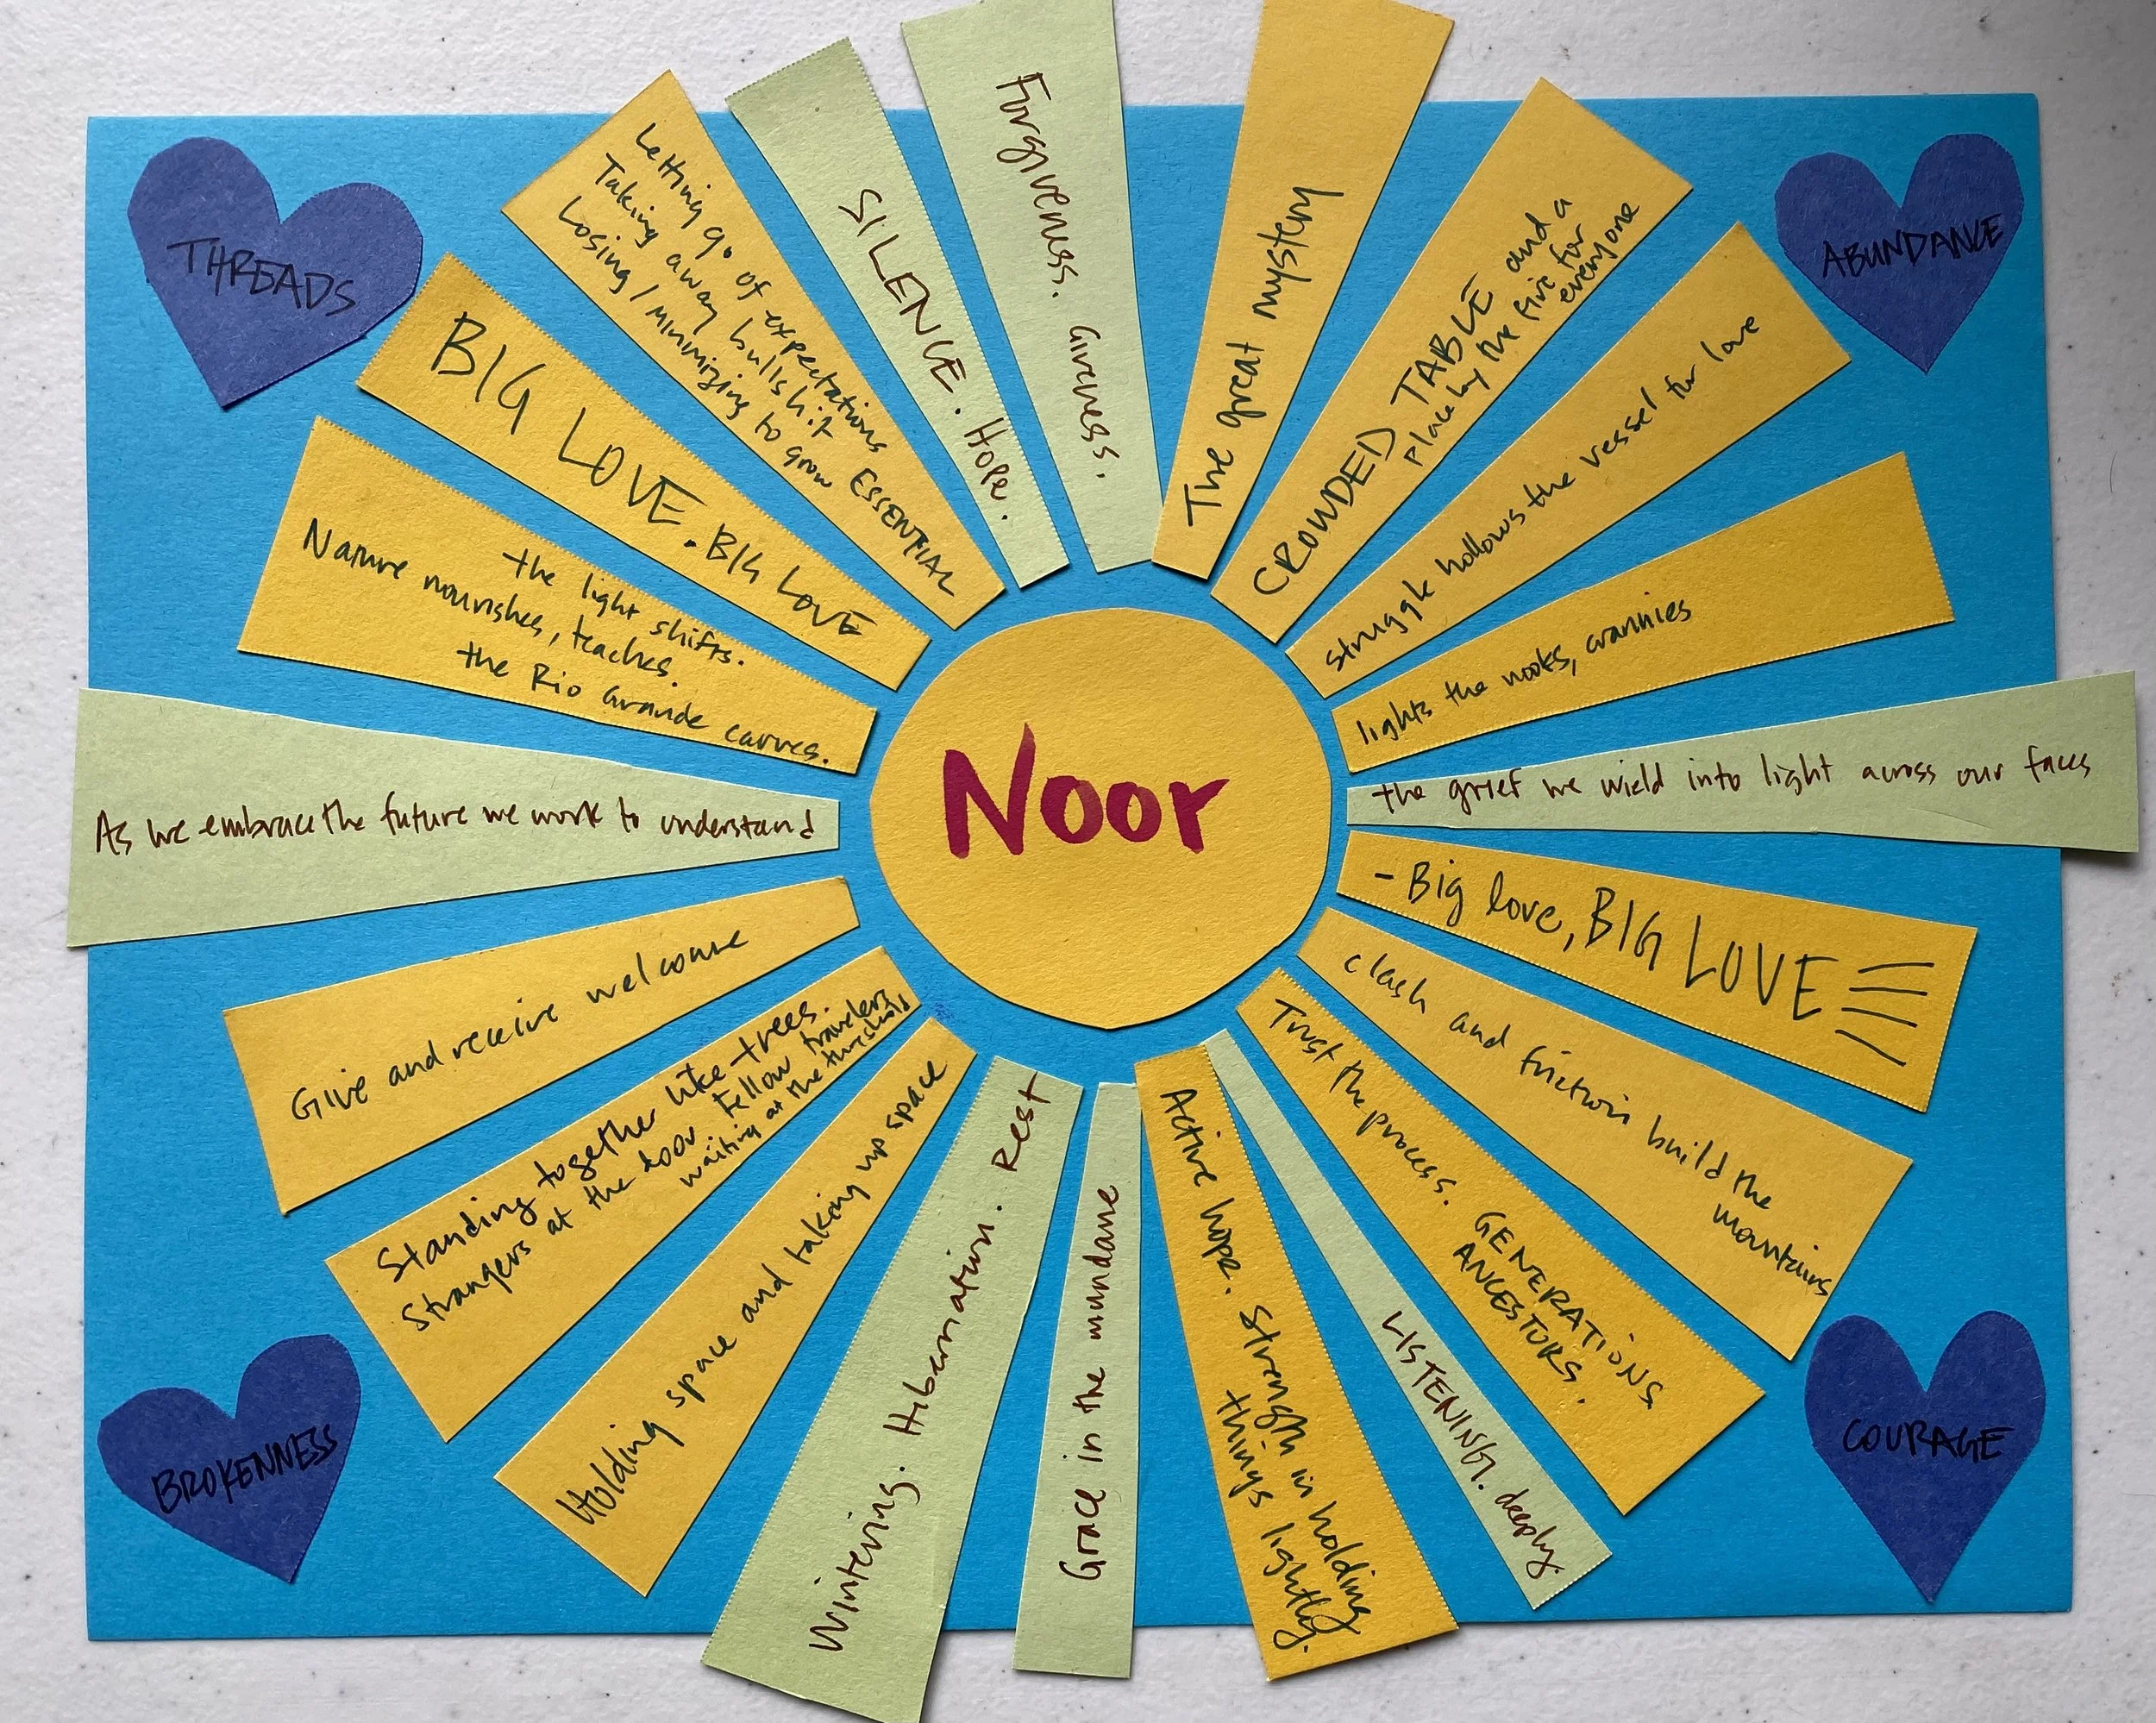 THREADS
ABUNDANCE
Noor
The great mystery
CROWDED TABLE and a
place by the fire for
everyone
struggle hollows the vessel for love
lights the nooks, crannies
the grief we wield into light across our faces
- Big love, BIG LOVE
clash and friction build the
mountains
Trust the process. GENERATIONS
ANCESTORS.
LISTENING. deeply.
Active hope. Strength in holding
things lightly.
Grace in the mundane
Wintering. Hibernation. Rest
Holding space and taking up space
Standing together like trees.
Strangers at the door Fellow travelers
waiting at the threshold
Give and receive welcome
As we embrace the future we work to understand
the light shifts.
Nature nourishes, teaches.
the Rio Grande carves.
BIG LOVE. BIG LOVE
Letting go of expectations
Taking away bullshit
Losing / Minimizing to grow ESSENTIAL
SILENCE. Hope.
Forgiveness. Giveness.
BROKENNESS
COURAGE